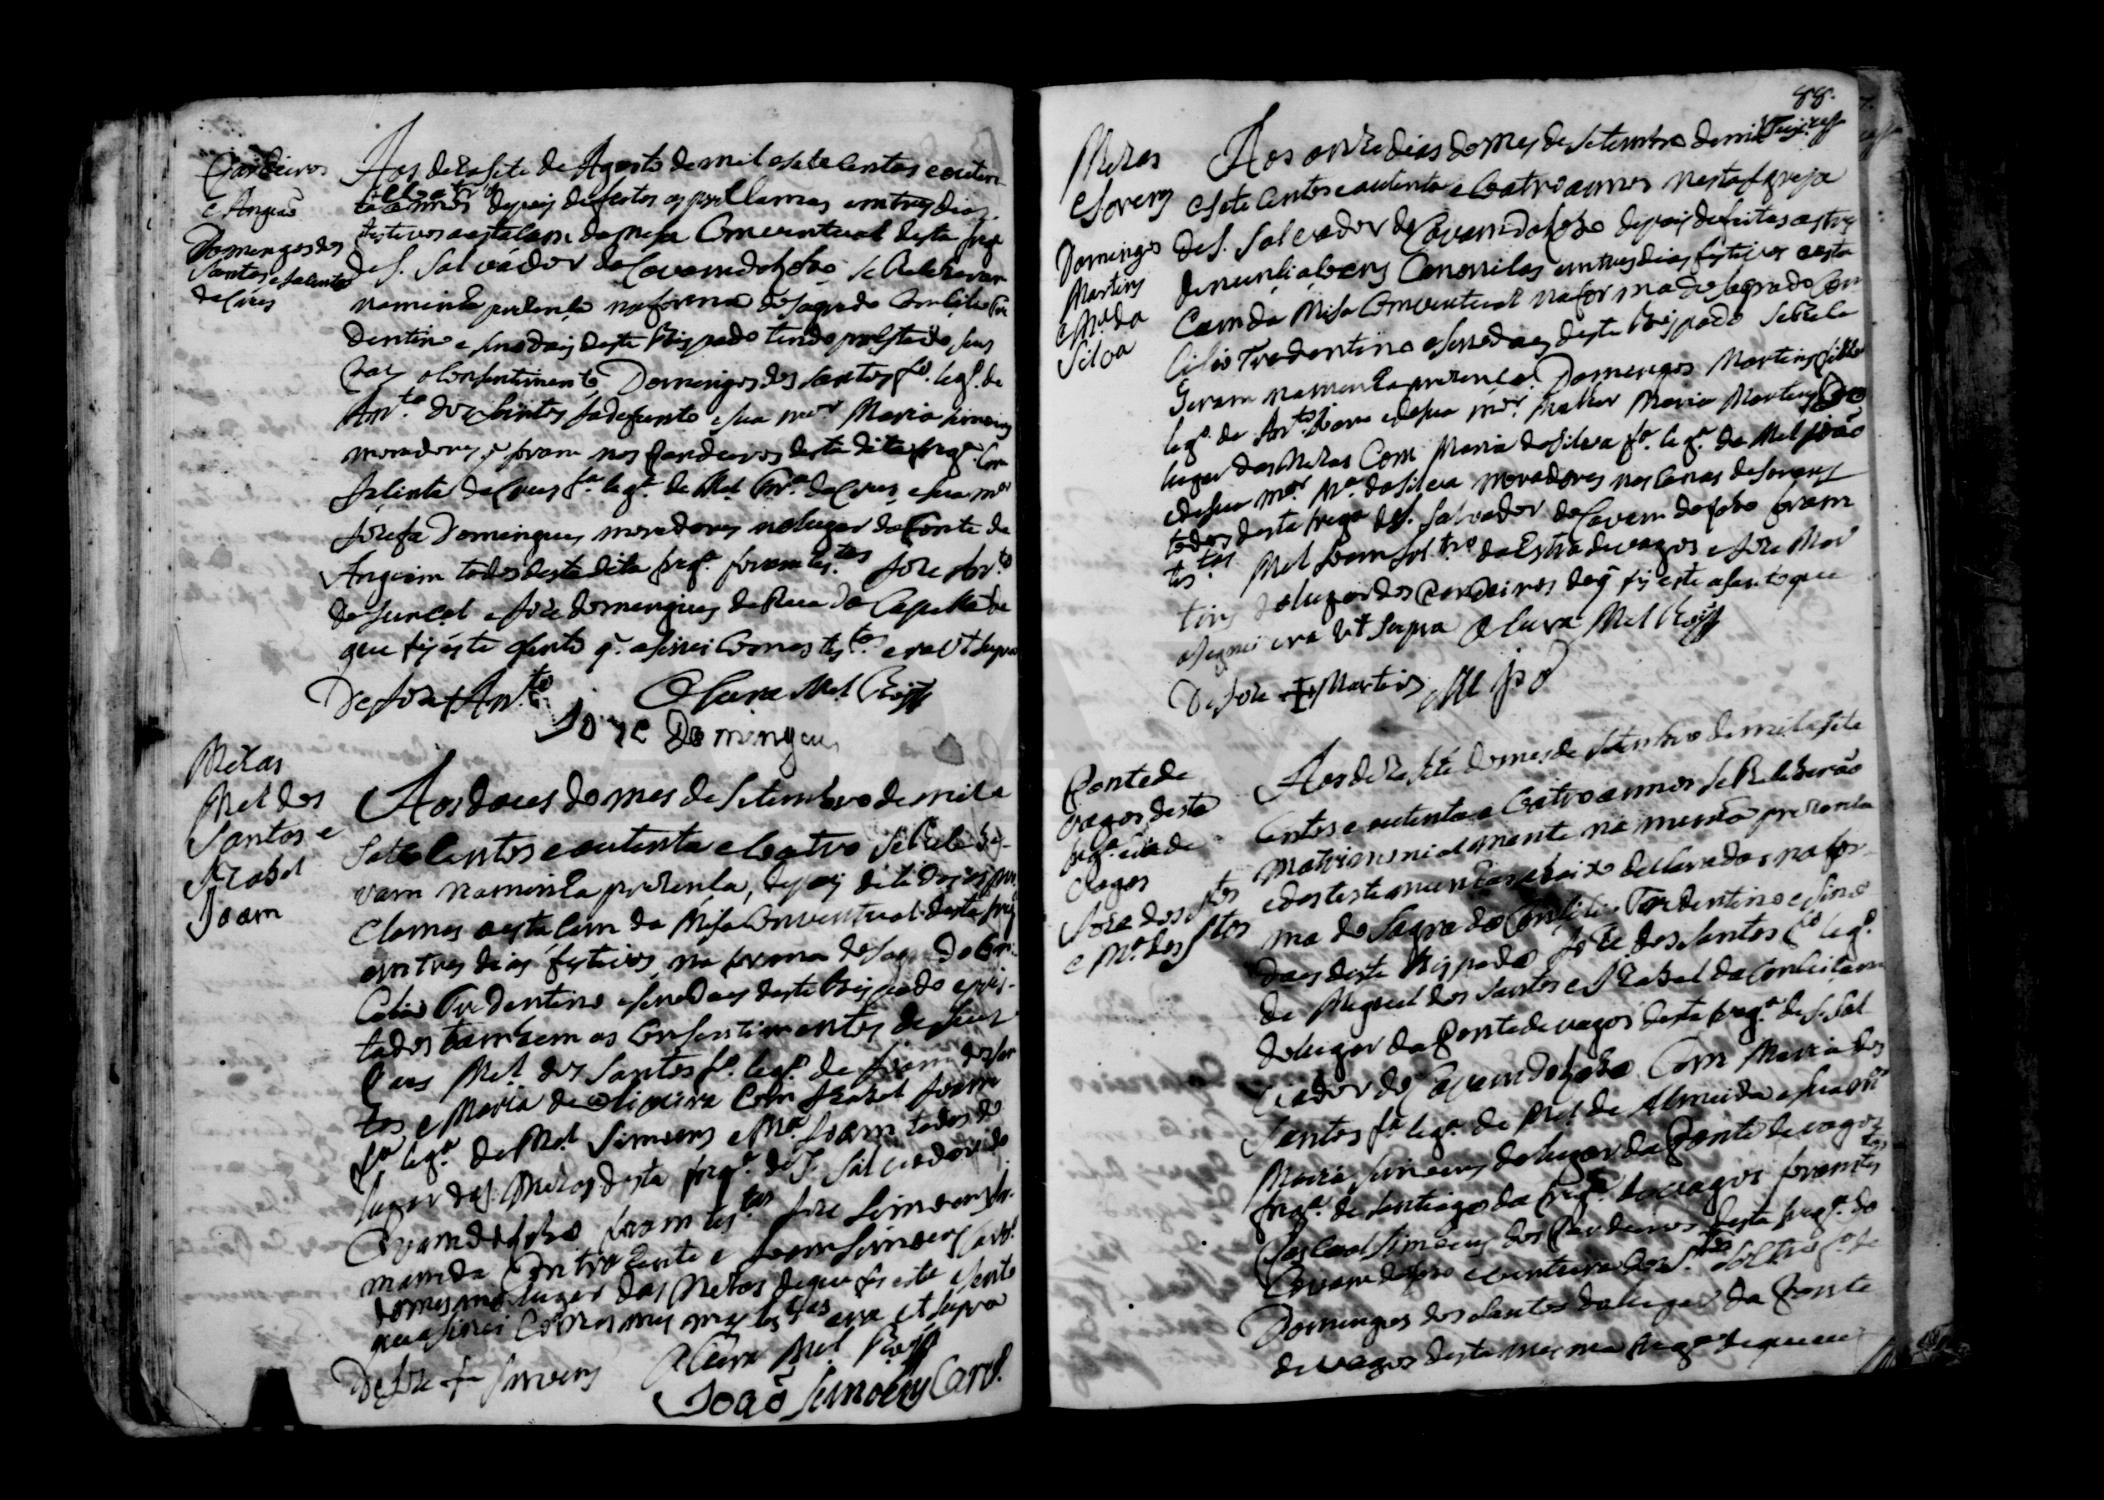 Cardeiros
e Angião
Domengos dos
Santos e Jasinta
da Crus
Aos dezasete de Agosto de mil e sete centos e outen
ta e coatro annos depois de feitos os proclamas em tres dias
festivos a estação da missa Conventual desta freg.ª
de S. Salvador da Covam do Lobo se Receberam
na minha prezença na forma do Sagrado Concilio Tri
dentino e sinodais deste Bispado tendo prestado seus
Pais o Consentimento Domingos dos Santos f.º leg.º de
Ant.º dos Santos ja defunto e sua m.er Maria Simoins
moradores q̃ foram nos Cardeiros desta dita freg.ª Com
Jasinta da Crus f.ª leg.ª de M.el Fr.ª da Crus e sua m.er
Josefa Domingues moradores no lugar da Fonte de
Angeão todos desta dita freg.ª foram tes.tas Joze Ant.º
de Juncal e Joze domengues da Rua da Capella de
que fis este asento q̃ asinei Com as tes.tas era ut supra
De Joze + Ant.º
O Cura M.el
Joze Domingues
Mezas
M.el dos
Santos e
Izabel
Joam
Aos dous do mes de Setembro de mil e
Sete Centos e outenta e Coatro se Rece be-
ram na minha prezença, depois de tidos os pro
clamas a estaçam da Missa Conventual desta freg.
em tres dias festivos, na forma do Sagrado Con
Cilio Tridentino e sinodais deste Bispado e pres-
tados tambem os Consentimentos de seus
Pais M.el dos Santos f.º leg.º de Joam dos San
tos e Maria de oliveira Com Izabel Joam
f.ª leg.ª de M.el Simoens e M.ª Joam todos do
lugar das Mezas desta freg.ª de S. Salvador da
Covam do Lobo foram tes.tas Joze Simoens
e Joam Simoens Card.
do mesmo lugar das Mezas de que fis este asento
que asinei Com as mesmas tes.tas era ut supra
De Joze + Simoens
O Cura M.el
João Simoens Card.
88.
Mezas
e Sorens
Domingos
Martins
e M.ª da
Silva
Aos onze dias do mes de Setembro de mil
e sete Centos e outenta e Coatro annos nesta Igreja
de S. Salvador da Covam do Lobo depois de feitas as tres
denunciaçoens Canonicas em tres dias festivos a esta
Cam da Missa Conventual na forma do Sagrado Con
Cilio Tredentino e sinodaes deste Bispado se Rece
beram na minha prezença Domengos Martins filho
leg.º de Ant.º e de sua m.er Maria Martins do
lugar das Mezas Com Maria da Silva f.ª leg.ª de M.el João
e de sua m.er M.ª da Silva moradores nas Canas de Sorens
todos desta freg.ª de S. Salvador da Covam do Lobo foram
tes.tas M.el Joam Solt.ro da Estrada de vagos e Joze Mar
tins do lugar dos Cardeiros de q̃ fis este asento que
asignei era ut supra O Cura M.el
De Joze + Martins
Ponte de
vagos desta
freg.ª e a de
Vagos
Joze dos S.tos
e M.ª dos S.tos
Aos dezasete do mes de Setembro de mil e sete
Centos e outenta e Coatro annos se Receberão
matrimonialmente na minha prezença
e das testemunhas abaixo declaradas na for
ma do Sagrado Concilio Tredentino e sino
daes deste Bispado Joze dos Santos f.º leg.º
de Miguel dos Santos e Izabel da Conceiçam
do lugar da Ponte de vagos desta freg.ª de S. Sal
vador da Covam do Lobo Com Maria dos
Santos f.ª leg.ª de M.el de Almeida e sua m.er
Maria Simoens do lugar da Ponte de vagos
freg.ª de Santiago da freg.ª de vagos foram tes.tas
Pascoal Simoens dos Cardeiros desta freg.ª da
Covam do Lobo e ventura dos S.tos solt.ro f.º de
Domingos dos Santos do lugar da Ponte
de vagos desta mesma freg.ª de que eu